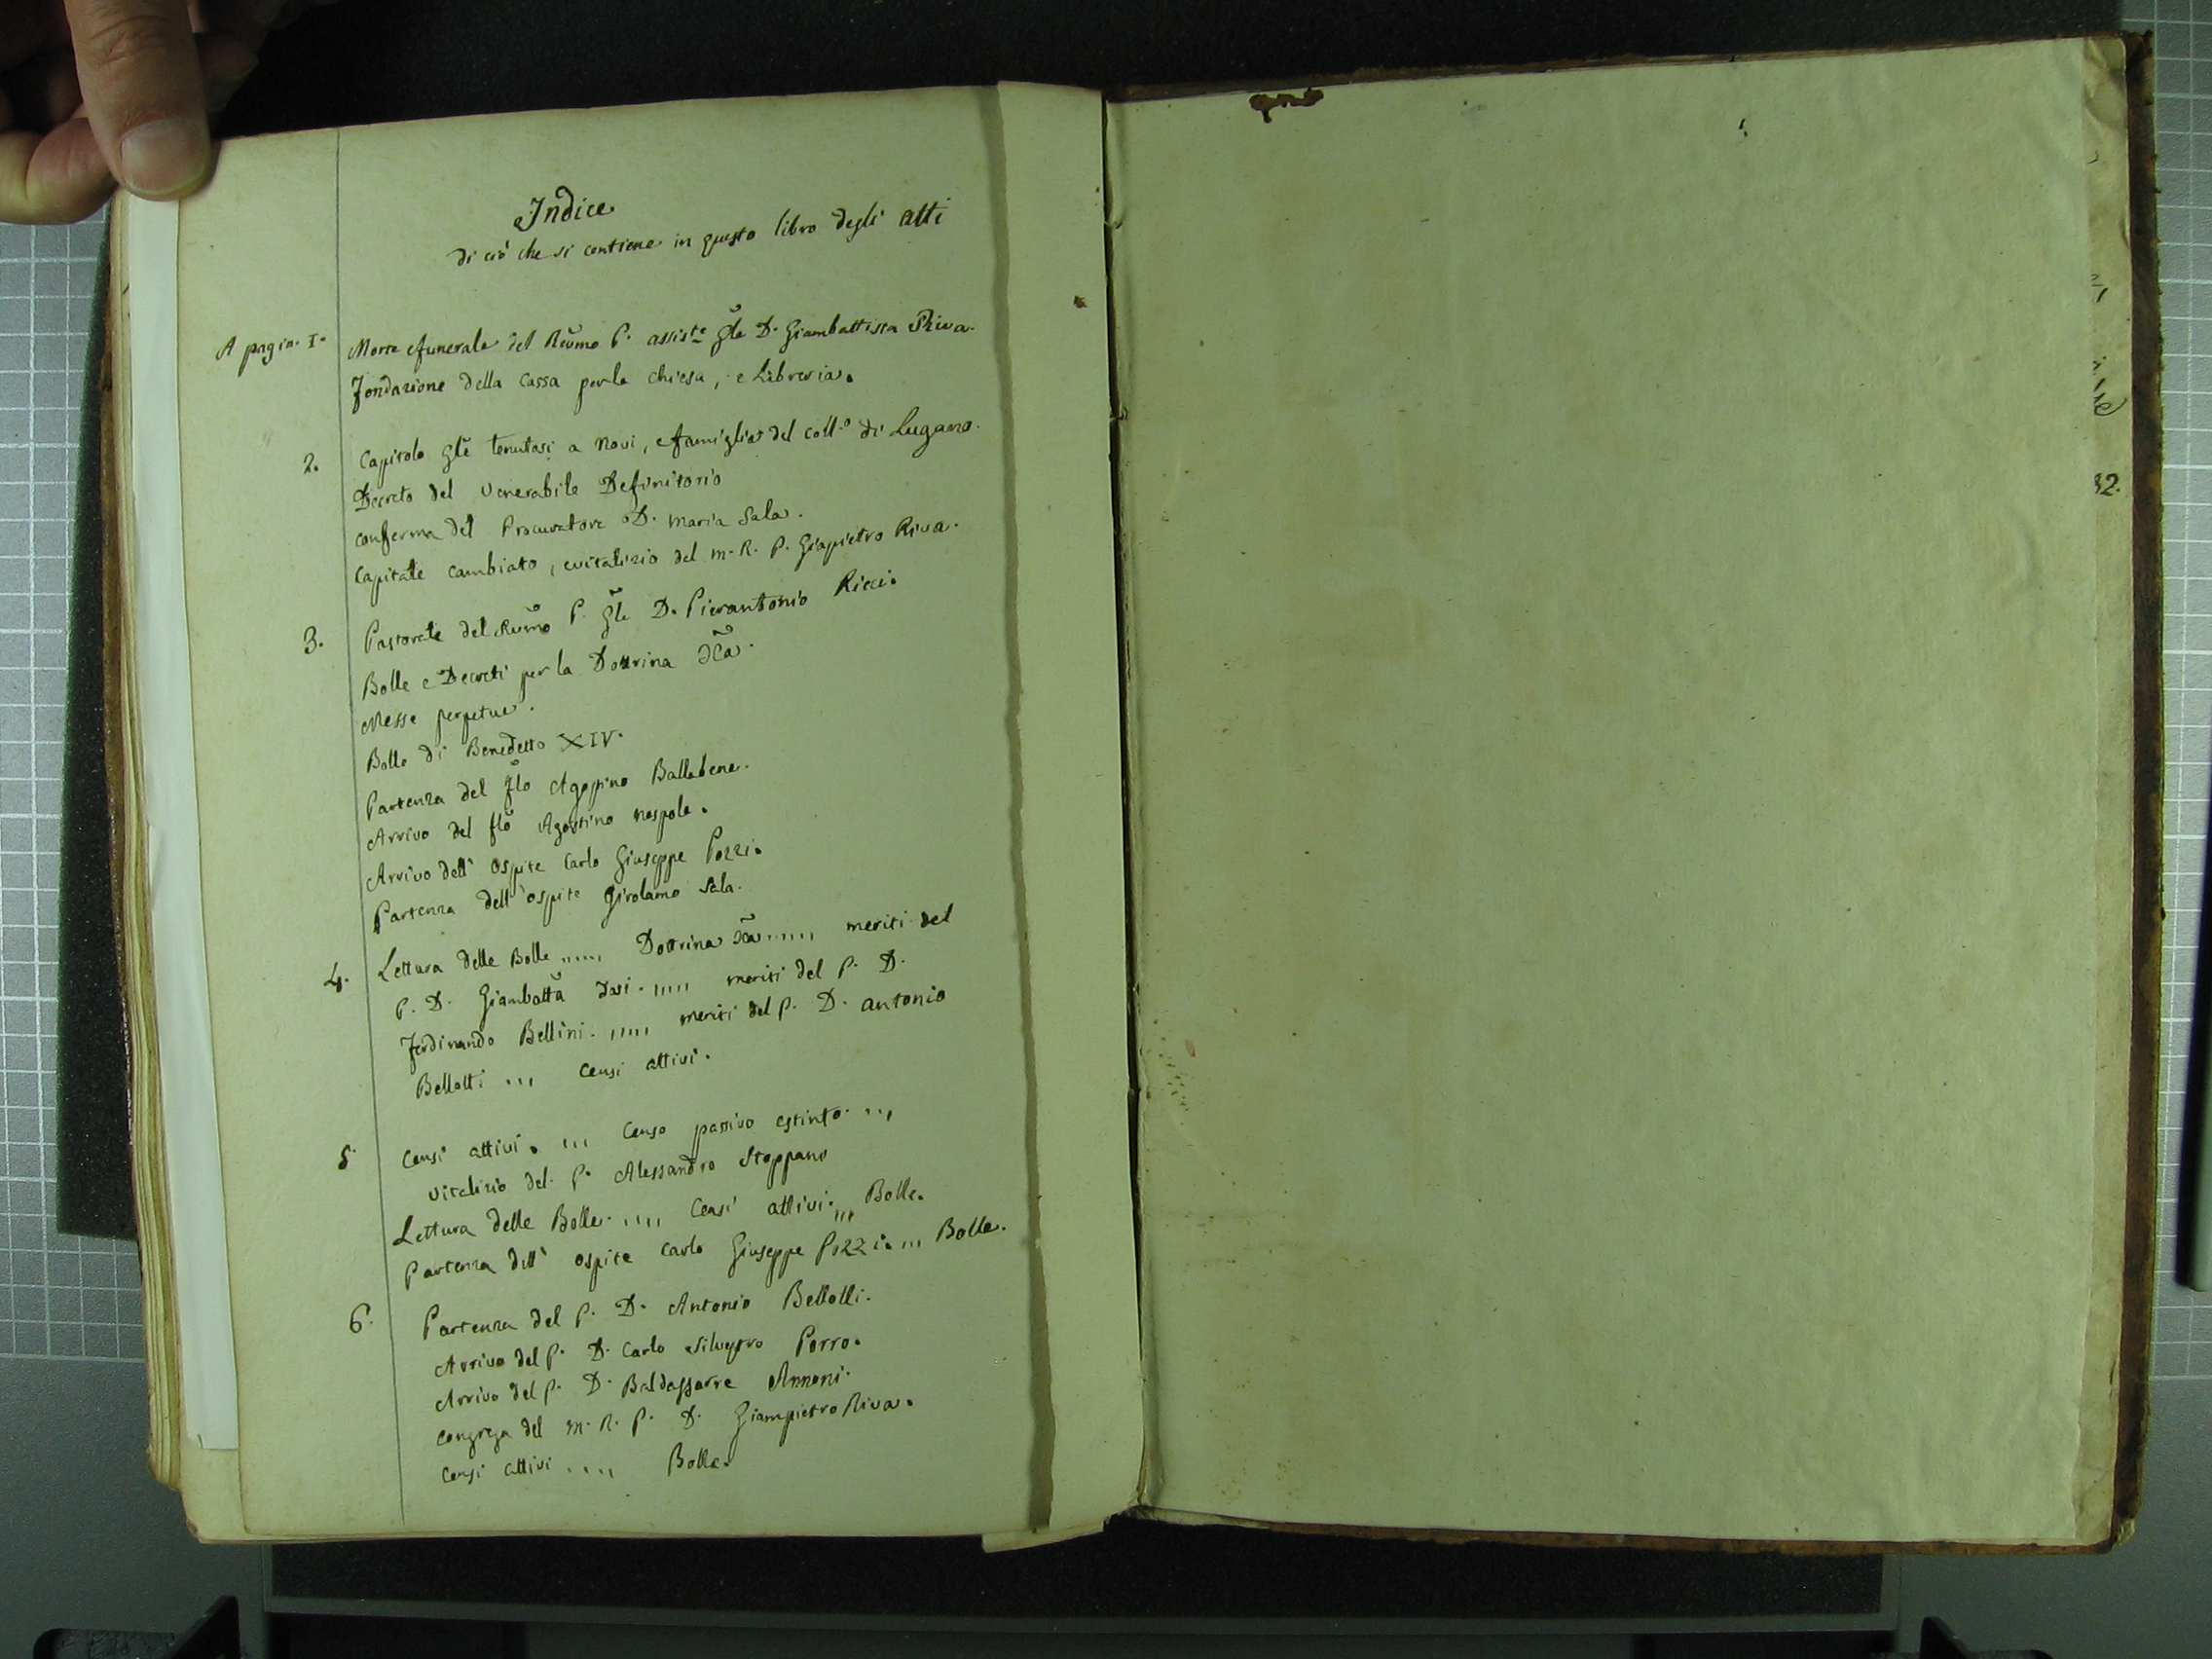 Indice
di ciò che si contiene in questo libro degli atti
A pagin. 1. Morte e funerale del Rev̄mo P. assiste. gl̄e D. Giambattista Riva.
Fondazione della Cassa per la chiesa, e Libreria.
2. Capitolo gl̄e tenutosi a Novi, e famiglia del coll.o di Lugano.
Decreto del Venerabile Definitorio
conferma del Procuratore D. Maria Sala.
Capitale cambiato, e vitalizio del m. R. P. Giāpietro Riva.
3. Pastorale del Rev̄mo P. gl̄e D. Pierantonio Ricci.
Bolle e Decreti per la Dottrina Xc̄a.
Messe perpetue.
Bolle di Benedetto XIV.
Partenza del fl̄o Agostino Ballabene.
Arrivo del fl̄o Agostino Nespola.
Arrivo dell' Ospite Carlo Giuseppe Pozzi.
Partenza dell' ospite Girolamo Sala.
4. Lettura delle Bolle ,,,,, Dottrina Xc̄a ,,,,, meriti del
P. D. Giambatt̄a ,,,,, meriti del P. D.
Ferdinando Bellini. ,,,,, meriti del P. D. Antonio
Bellotti ,,, Censi attivi.
5 Censi attivi. ,,, Censo passivo estinto. ,,,
Vitalizio del P. Alessandro Stoppani
Lettura delle Bolle. ,,,, Censi attivi. ,,, Bolle.
Partenza dell' ospite Carlo Giuseppe Pozzi. ,,, Bolle.
6. Partenza del P. D. Antonio Bellotti.
Arrivo del P. D. Carlo Silvestro Porro.
Arrivo del P. D. Baldassarre Annoni.
Congrega del M. R. P. D. Giampietro Riva.
Censi attivi ,,,, Bolle.
32.